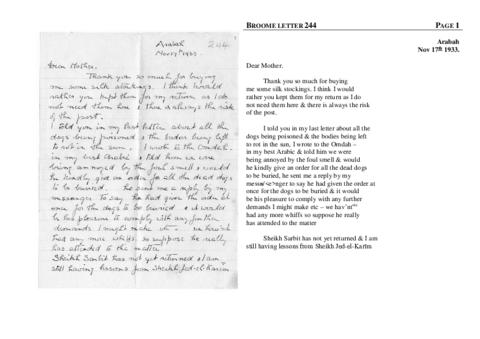 BROOME LETTER 244 PAGE 1
Arabah 244
Nov 17th 1933.
Dear Mother.
Thank you so much for buying
me some silk stockings. I think I would
rather you kept them for my return as I do
not need them here & there is always the risk
of the post.
I told you in my last letter about all the
dogs being poisoned & the bodies being left
to rot in the sun. I wrote to the Omdah –
in my best Arabic & told him we were
being annoyed by the foul smell & would
he kindly give an order for all the dead dogs
to be buried. he sent me a reply by my
messenger to say he had given the order at
once for the dogs to be buried & it would
be his pleasure to comply with any further
demands I might make etc – we haven't
had any more whiffs so suppose he really
has attended to the matter
Sheikh Sarbit has not yet returned & I am
still having lessons from Sheikh Jud-el-Karim
Arabah
Nov 17th 1933.
Dear Mother.
Thank you so much for buying
me some silk stockings. I think I would
rather you kept them for my return as I do
not need them here & there is always the risk
of the post.
I told you in my last letter about all the
dogs being poisoned & the bodies being left
to rot in the sun, I wrote to the Omdah –
in my best Arabic & told him we were
being annoyed by the foul smell & would
he kindly give an order for all the dead dogs
to be buried, he sent me a reply by my
messad<e>nger to say he had given the order at
once for the dogs to be buried & it would
be his pleasure to comply with any further
demands I might make etc – we hav'nt
had any more whiffs so suppose he really
has attended to the matter
Sheikh Sarbit has not yet returned & I am
still having lessons from Sheikh Jud-el-Karîm